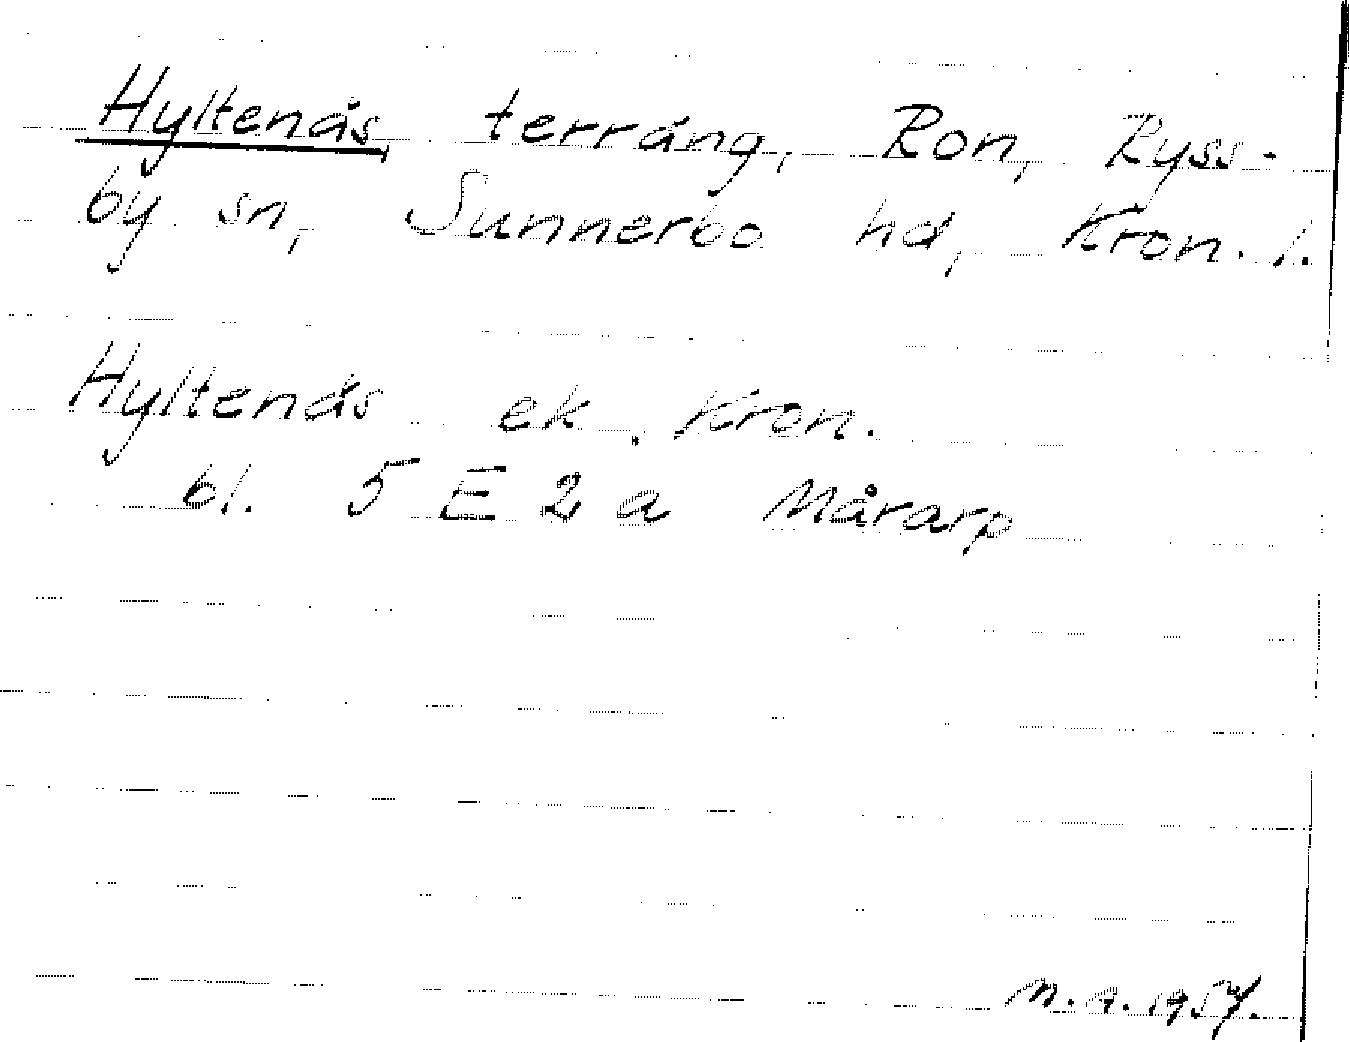 Hyltenäs, terräng, Ron, Ryss-
by sn, Sunnerbo hd, Kron. l.
Hyltenäs ek. Kron.
bl. 5 E 2 a Mårarp
M.A. 1957.